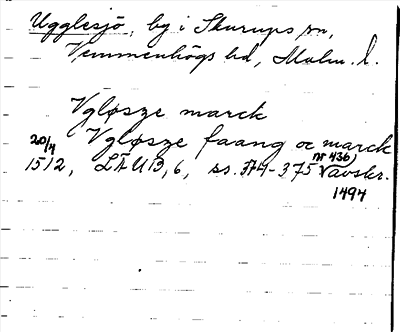 Ugglesjö, by i Skurups sn,
Vemmenhögs hd, Malm. l.
Vgløsze marck
20/4 Vgløsze faang oc marck
1512, LÄUB, 6, ss. 374-375 (nr 436) Vavskr.
1494